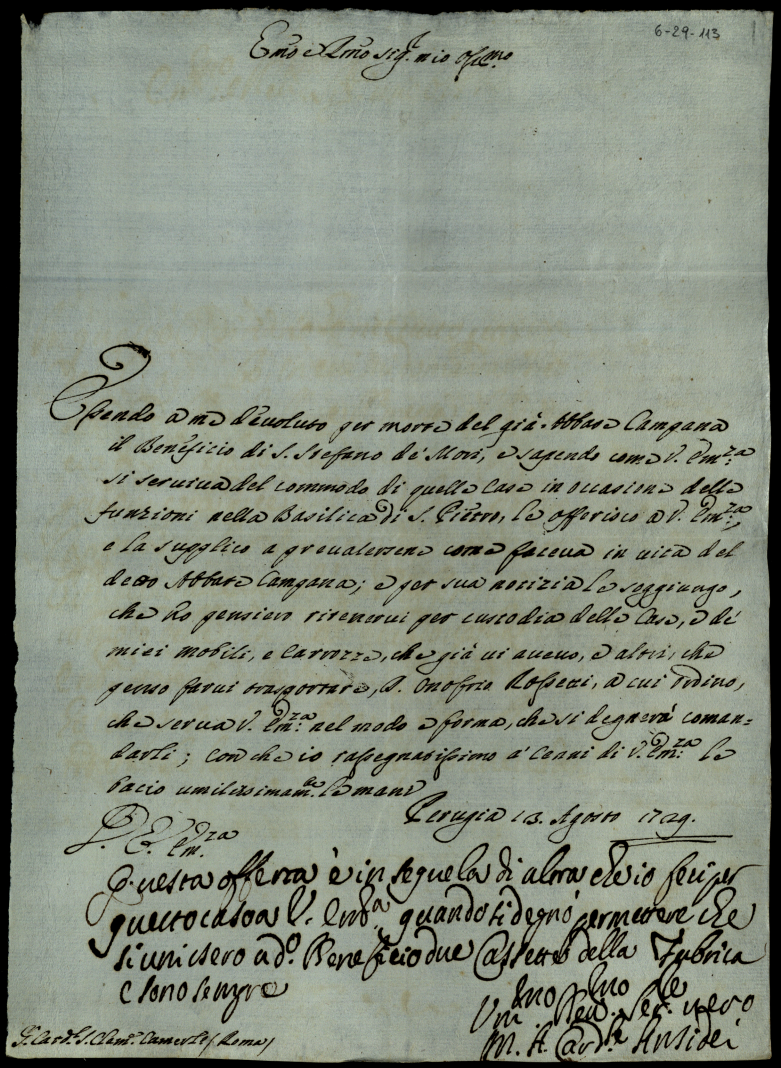 6-29-113
Emo e Rmo sigr. mio Ossmo
Essendo a me devoluto per morte del già Abbate Campana
il Beneficio di S. Stefano de' Mori, e sapendo come V. Emza
si serviva del commodo di quelle Case in occasione delle
funzioni nella Basilica di S. Pietro, le offerisco a V. Emza,
e la supplico a prevalersene come faceva in vita del
detto Abbate Campana; e per sua notizia le soggiungo,
che ho pensiero ritenervi per custodia delle Case, e de'
miei mobili, e Carrozze, che già vi avevo, e altri, che
penso farvi trasportare, D. Onofrio Rossetti, a cui ordino,
che serva V. Emza nel modo e forma, che si degnerà coman=
darli; con che io rassegnatissimo a' Cenni di V. Emza le
bacio umilissimamte. le mani
Perugia 13. Agosto 1729.
P. E. Emza
Questa offerta è in seguela di altra che io feci per
questo caso a V. Emza quando si degnò permettere che
si unissero a do. Beneficio due Casette della Fabrica
E sono sempre
Umo Devmo Serre vero
M. A. Cardle Ansidei
Sr. Card. S. Clemte. Camerlo (Roma)